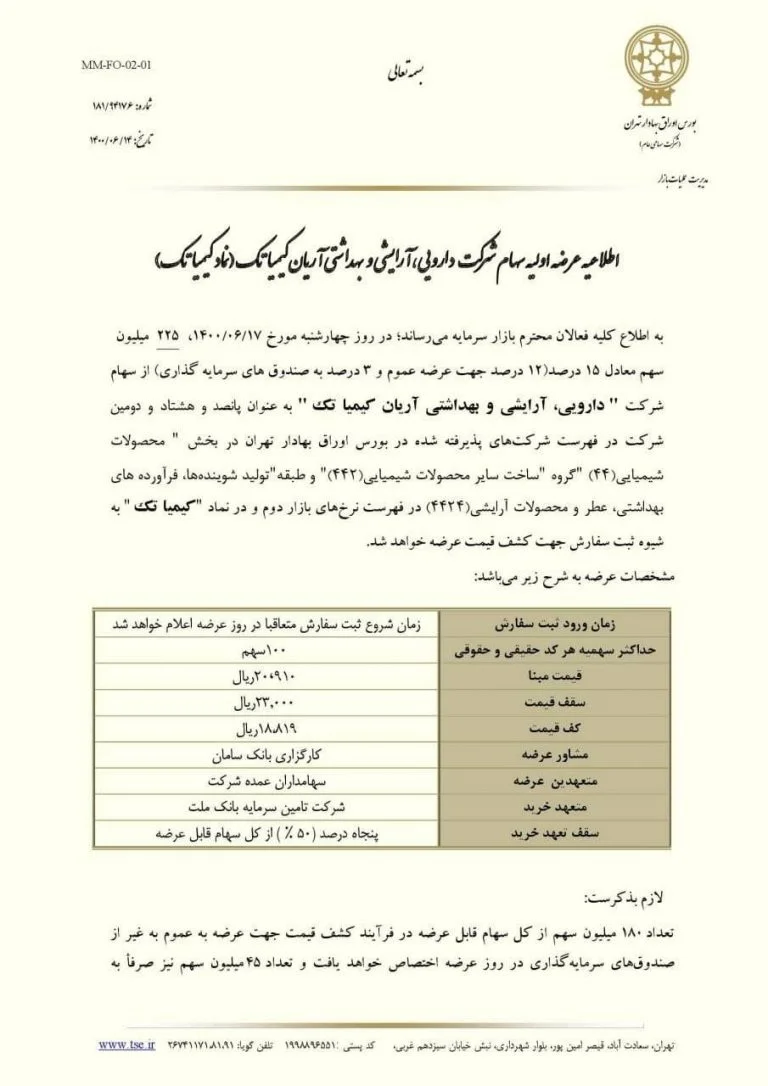 MM-FO-02-01
بسمه تعالی
شماره: ۱۸۱/۹۴۱۷۶
تاریخ: ۱۴۰۰/۰۶/۱۴
بورس اوراق بهادار تهران
(شرکت سهامی عام)
مدیریت عملیات بازار
اطلاعیه عرضه اولیه سهام شرکت دارویی، آرایشی و بهداشتی آریان کیمیا تک (نماد کیمیاتک)
به اطلاع کلیه فعالان محترم بازار سرمایه می‌رساند؛ در روز چهارشنبه مورخ ۱۴۰۰/۰۶/۱۷، ۲۲۵ میلیون
سهم معادل ۱۵ درصد(۱۲ درصد جهت عرضه عموم و ۳ درصد به صندوق های سرمایه گذاری) از سهام
شرکت " دارویی، آرایشی و بهداشتی آریان کیمیا تک " به عنوان پانصد و هشتاد و دومین
شرکت در فهرست شرکت‌های پذیرفته شده در بورس اوراق بهادار تهران در بخش " محصولات
شیمیایی(۴۴) "گروه "ساخت سایر محصولات شیمیایی(۴۴۲)" و طبقه"تولید شوینده‌ها، فرآورده های
بهداشتی، عطر و محصولات آرایشی(۴۴۲۴) در فهرست نرخ‌های بازار دوم و در نماد "کیمیا تک " به
شیوه ثبت سفارش جهت کشف قیمت عرضه خواهد شد.
مشخصات عرضه به شرح زیر می‌باشد:
زمان ورود ثبت سفارش زمان شروع ثبت سفارش متعاقبا در روز عرضه اعلام خواهد شد
حداکثر سهمیه هر کد حقیقی و حقوقی ۱۰۰سهم
قیمت مبنا ۲۰،۹۱۰ریال
سقف قیمت ۲۳,۰۰۰ریال
کف قیمت ۱۸،۸۱۹ریال
مشاور عرضه کارگزاری بانک سامان
متعهدین عرضه سهامداران عمده شرکت
متعهد خرید شرکت تامین سرمایه بانک ملت
سقف تعهد خرید پنجاه درصد (۵۰ ٪) از کل سهام قابل عرضه
لازم بذکرست:
تعداد ۱۸۰ میلیون سهم از کل سهام قابل عرضه در فرآیند کشف قیمت جهت عرضه به عموم به غیر از
صندوق‌های سرمایه‌گذاری در روز عرضه اختصاص خواهد یافت و تعداد ۴۵میلیون سهم نیز صرفاً به
تهران، سعادت آباد، قیصر امین پور، بلوار شهرداری، نبش خیابان سیزدهم غربی، کد پستی :۱۹۹۸۸۹۶۵۵۱ تلفن گویا: ۲۶۷۴۱۱۷۱،۸۱،۹۱ www.tse.ir